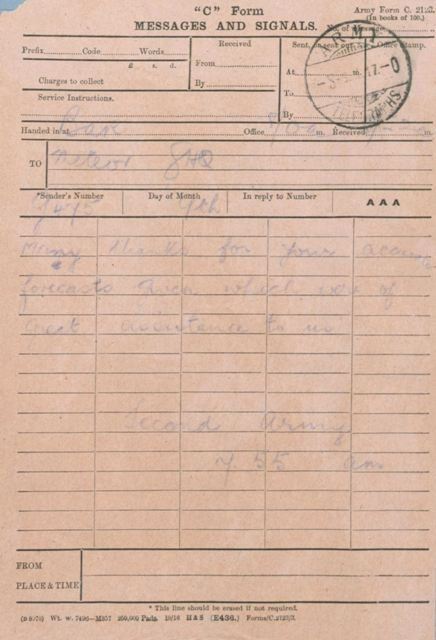 "C" Form
Army Form C. 2123.
(In books of 100.)
MESSAGES AND SIGNALS.
No. of Message
Prefix Code Words
£ s. d.
Charges to collect
Service Instructions.
Received
From
By
Sent, or sent out Office Stamp.
At m.
To
By
ARMY
TELEGRAPHS
Handed in at Office m. Received m.
TO Meteor GHQ
*Sender's Number Day of Month In reply to Number AAA
G475 9th
Many thanks for your
forecasts given which were of
great assistance to us
Second Army
7 55 am
FROM
PLACE & TIME
* This line should be erased if not required.
Wt. w. 7496—M857 250,000 Pads. 10/16 H & S (E436.) Forms/C.2123/3.